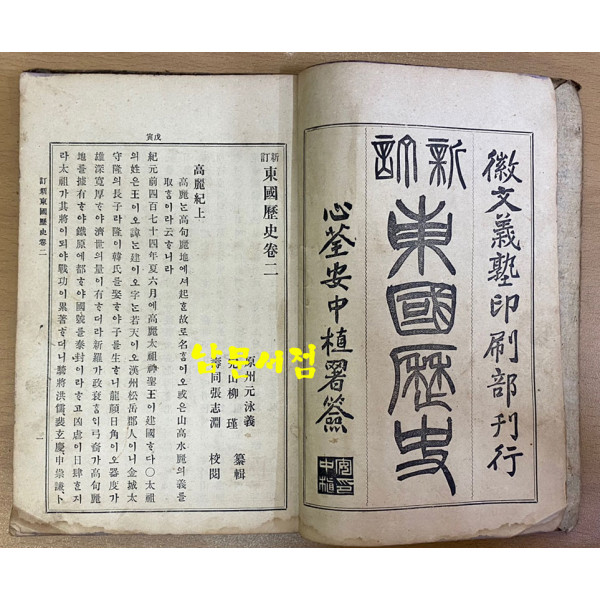 徽文義塾印刷部刊行
新訂
東國歷史
心荃安中植署簽
安印中植
戊寅
新訂 東國歷史卷二
原州 元泳義
元山 柳瑾 纂輯
壽同 張志淵 校閱
高麗紀上
高麗는高句麗地에셔起혼故로名홈이오或은山高水麗의義를
取홈이라云하니라
紀元前四百七十四年夏六月에高麗太祖神聖王이建國하다〇太祖
의姓은王이오諱는建이오字는若天이오漢州松岳郡人이니金城太
守隆의長子라隆이韓氏를娶하야子를生하니龍顔日角이오器度가
雄深寬厚하야濟世의量이有하더라新羅가政衰홈이弓裔가高句麗
地를據有하야鐵原에都하야國號를泰封이라하고凶虐이日肆하거
라太祖가其將이되야戰功이累著하더니騎將洪儒裴玄慶申崇謙卜
訂新東國歷史卷二
一
남문서점